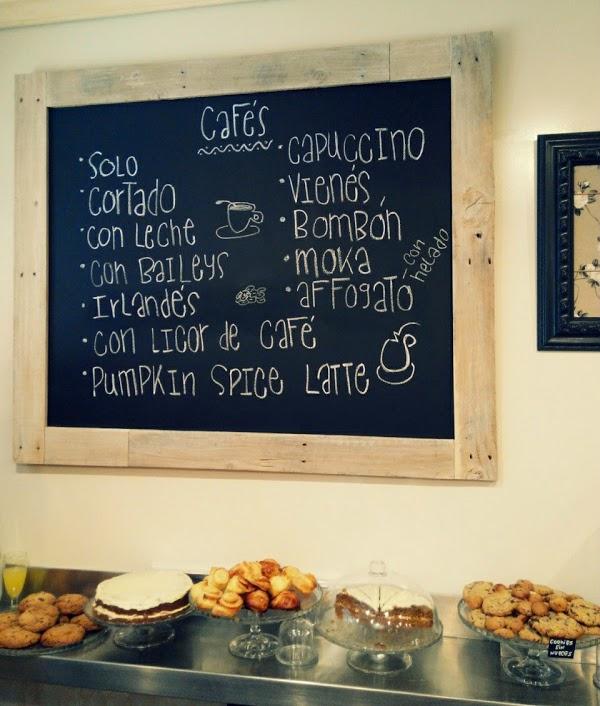 Cafés
• Solo
• Cortado
• Con Leche
• Con Baileys
• Irlandés
• Con Licor de Café
• Pumpkin Spice Latte
• Capuccino
• Vienés
• Bombón
• Moka
• Affogato con helado
COOKIES
SIN
NUECES